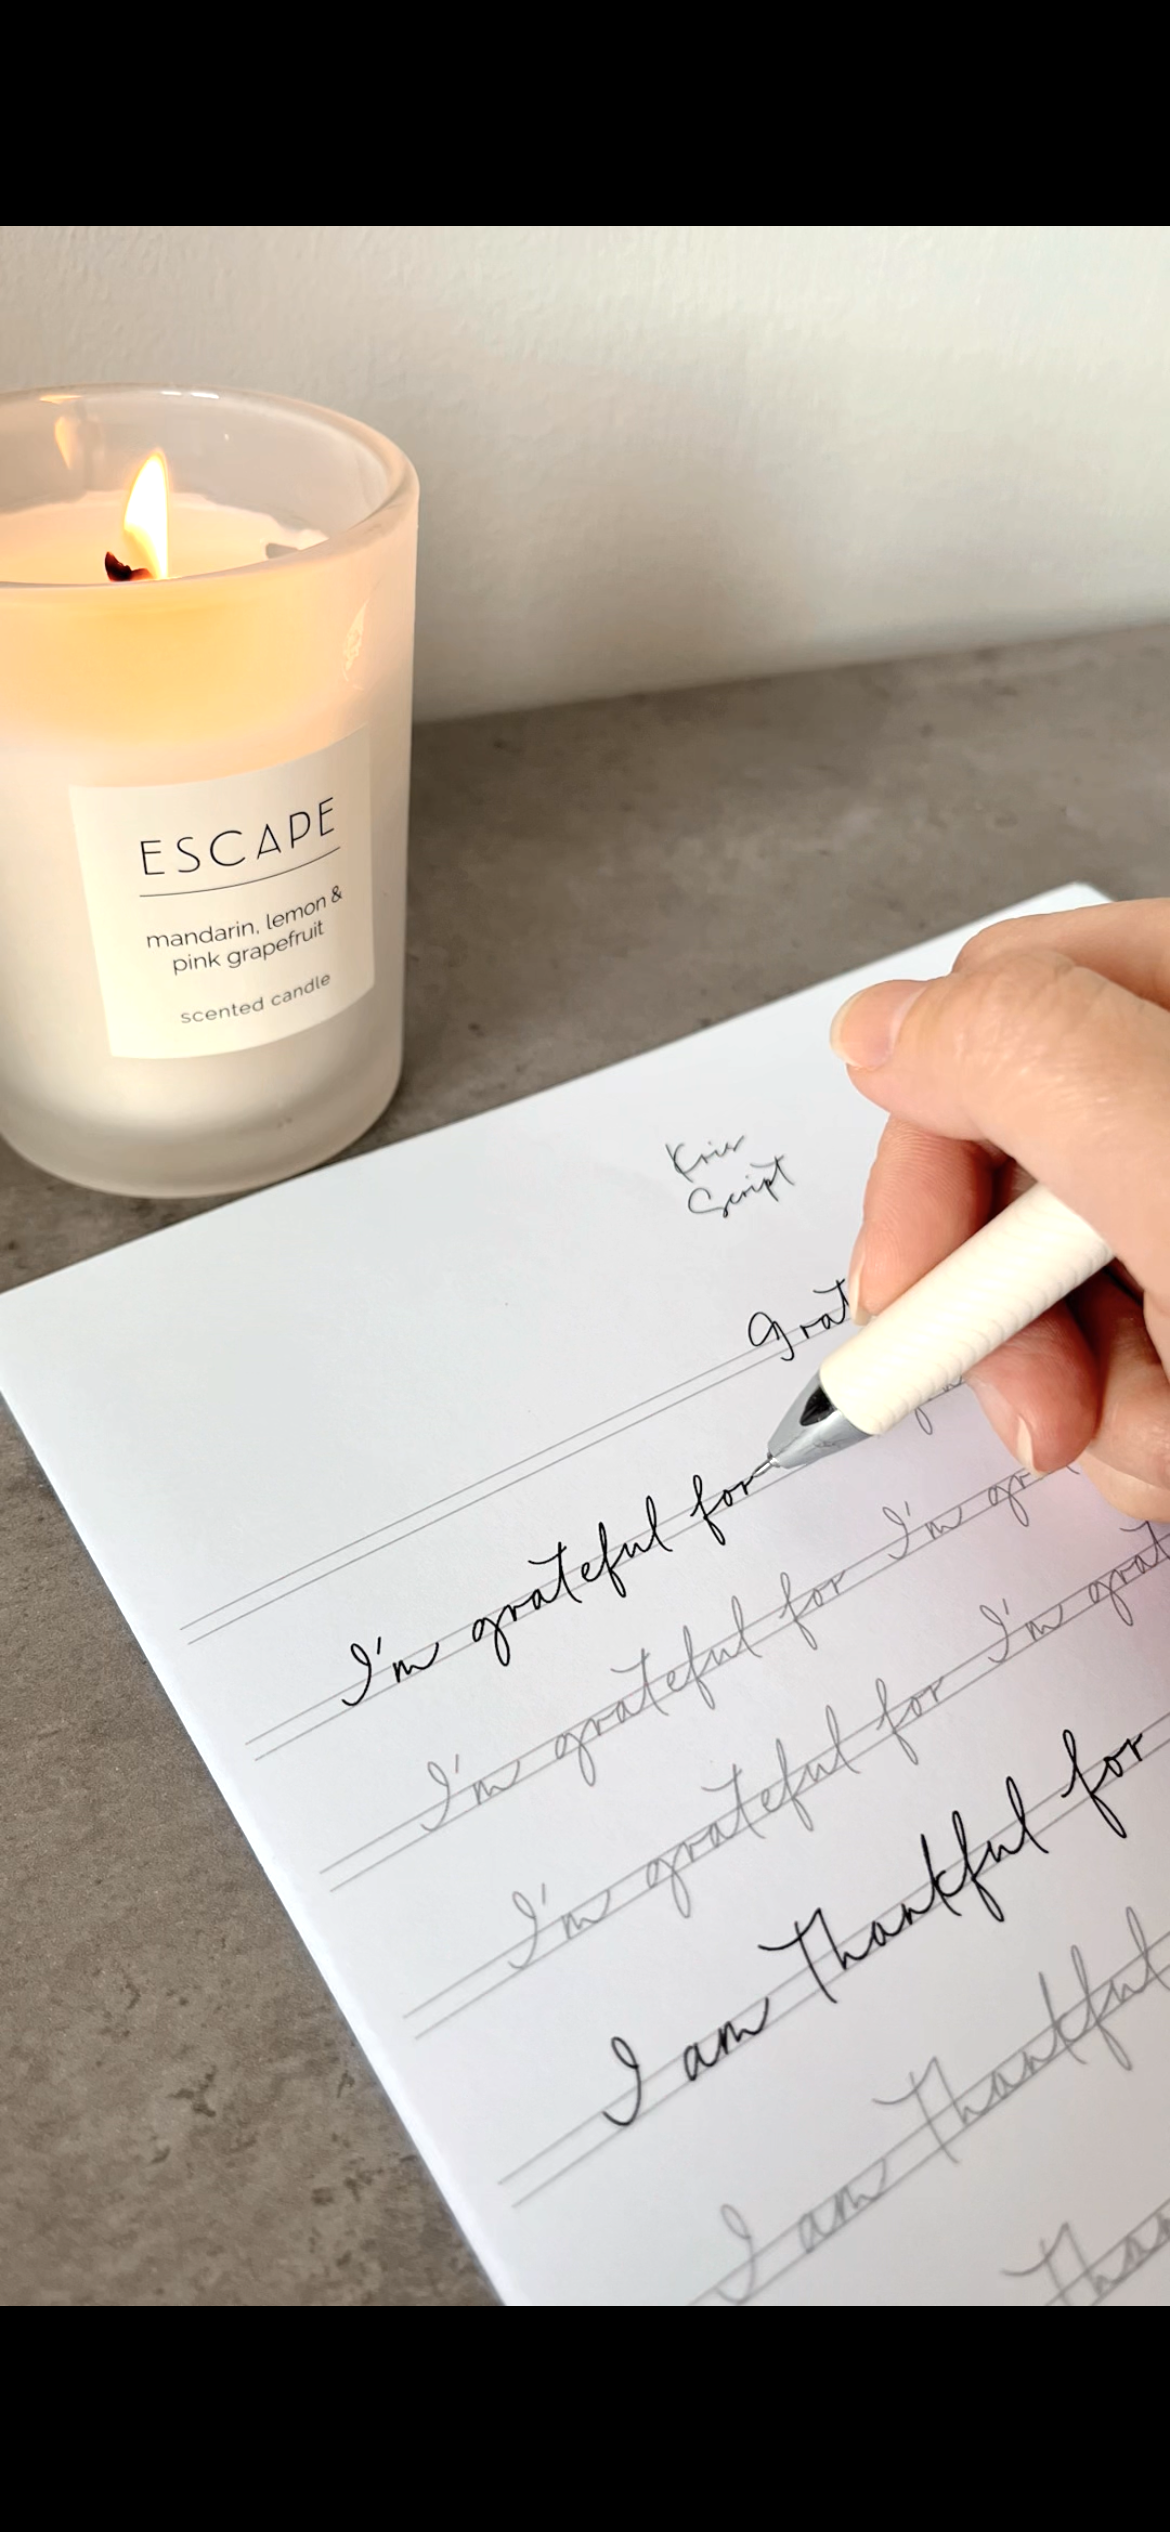 ESCAPE
mandarin, lemon &
pink grapefruit
scented candle
Krier
Script
Grat
I'm grateful for
I'm grateful for I'm gr
I'm grateful for I'm grat
I am Thankful for
I am Thankful
Than